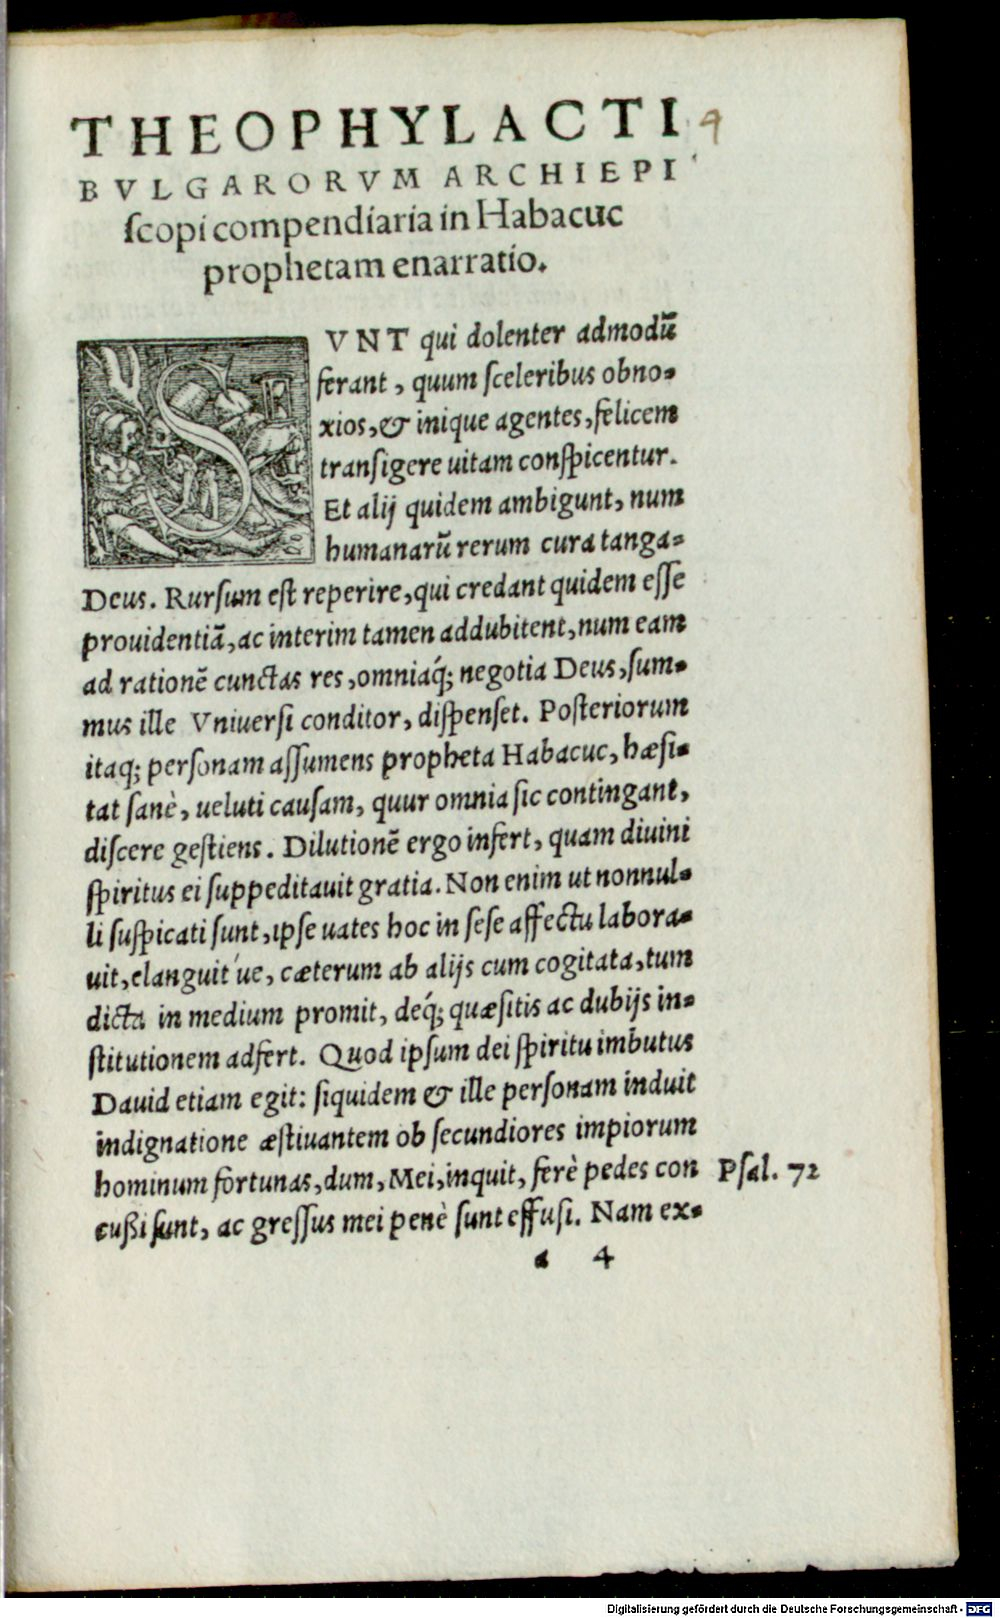 THEOPHYLACTI 4
BVLGARORVM ARCHIEPI
ſcopi compendiaria in Habacuc
prophetam enarratio.
SVNT qui dolenter admodũ
ferant, quum ſceleribus obno-
xios, & inique agentes, felicem
tranſigere uitam conſpicentur.
Et alij quidem ambigunt, num
humanarũ rerum cura tanga-
Deus. Rurſum eſt reperire, qui credant quidem eſſe
prouidentiã, ac interim tamen addubitent, num eam
ad rationẽ cunctas res, omniaq́; negotia Deus, ſum-
mus ille Vniuerſi conditor, diſpenſet. Poſteriorum
itaq; perſonam aſſumens propheta Habacuc, hæſi-
tat ſanè, ueluti cauſam, quur omnia ſic contingant,
diſcere geſtiens. Dilutionẽ ergo infert, quam diuini
ſpiritus ei ſuppeditauit gratia. Non enim ut nonnul-
li ſuſpicati ſunt, ipſe uates hoc in ſeſe affectu labora-
uit, elanguit'ue, cæterum ab alijs cum cogitata, tum
dicta in medium promit, deq́; quæſitis ac dubijs in-
ſtitutionem adfert. Quod ipſum dei ſpiritu imbutus
Dauid etiam egit: ſiquidem & ille perſonam induit
indignatione æſtiuantem ob ſecundiores impiorum
hominum fortunas, dum, Mei, inquit, ferè pedes con
cußi ſunt, ac greſſus mei penè ſunt effuſi. Nam ex-
Pſal. 72
a 4
Digitalisierung gefördert durch die Deutsche Forschungsgemeinschaft - DFG